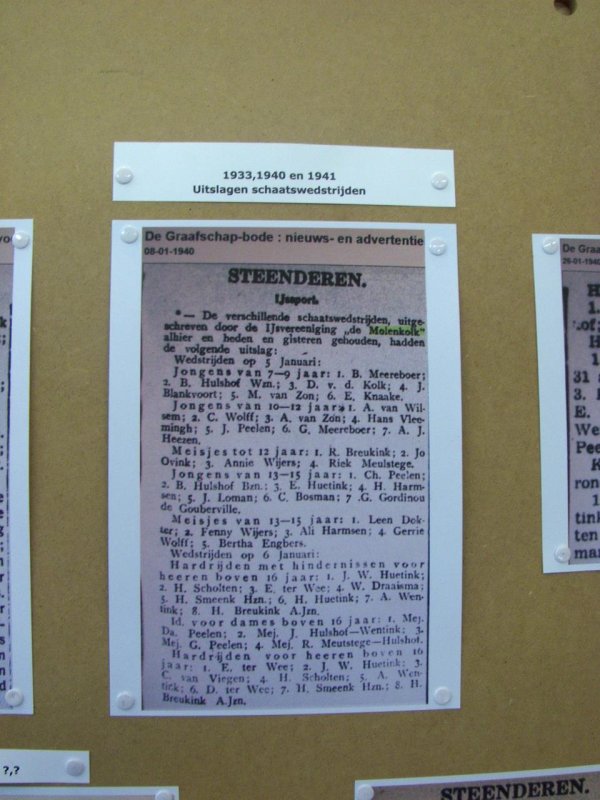 1933,1940 en 1941
Uitslagen schaatswedstrijden
De Graafschap-bode : nieuws- en advertentie
08-01-1940
STEENDEREN.
IJssport.
*— De verschillende schaatswedstrijden, uitge-
schreven door de IJsvereeniging „de Molenkolk"
alhier en heden en gisteren gehouden, hadden
de volgende uitslag:
Wedstrijden op 5 Januari:
Jongens van 7—9 jaar: 1. B. Meereboer;
2. B. Hulshof Wzn.; 3. D. v. d. Kolk; 4. J.
Blankvoort; 5. M. van Zon; 6. E. Knaake.
Jongens van 10—12 jaar: 1. A. van Wil-
sem; 2. C. Wolff; 3. A. van Zon; 4. Hans Vlee-
mingh; 5. J. Peelen; 6. G. Meereboer; 7. A. J.
Heezen.
Meisjes tot 12 jaar: 1. R. Breukink; 2. Jo
Ovink; 3. Annie Wijers; 4. Riek Meulstege.
Jongens van 13—15 jaar: 1. Ch. Peelen;
2. B. Hulshof Bzn.; 3. E. Huetink; 4. H. Harm-
sen; 5. J. Loman; 6. C. Bosman; 7 .G. Gordinou
de Gouberville.
Meisjes van 13—15 jaar: 1. Leen Dok-
ter; 2. Fenny Wijers; 3. Ali Harmsen; 4. Gerrie
Wolff; 5. Bertha Engbers.
Wedstrijden op 6 Januari:
Hardrijden met hindernissen voor
heeren boven 16 jaar: 1. J. W. Huetink;
2. H. Scholten; 3. E. ter Wee; 4. W. Draaisma;
5. H. Smeenk Hzn.; 6. H. Huetink; 7. A. Wen-
tink; 8. H. Breukink A.Jzn.
Id. voor dames boven 16 jaar: 1. Mej.
Da. Peelen; 2. Mej. J. Hulshof—Wentink; 3.
Mej. G. Peelen; 4. Mej. R. Meutstege—Hulshof.
Hardrijden voor heeren boven 16
jaar: 1. E. ter Wee; 2. J. W. Huetink; 3.
C. van Viegen; 4. H. Scholten; 5. A. Wen-
tink; 6. D. ter Wee; 7. H. Smeenk Hzn.; 8. H.
Breukink A.Jzn.
De Graa
26-01-1940
?,?
STEENDEREN.